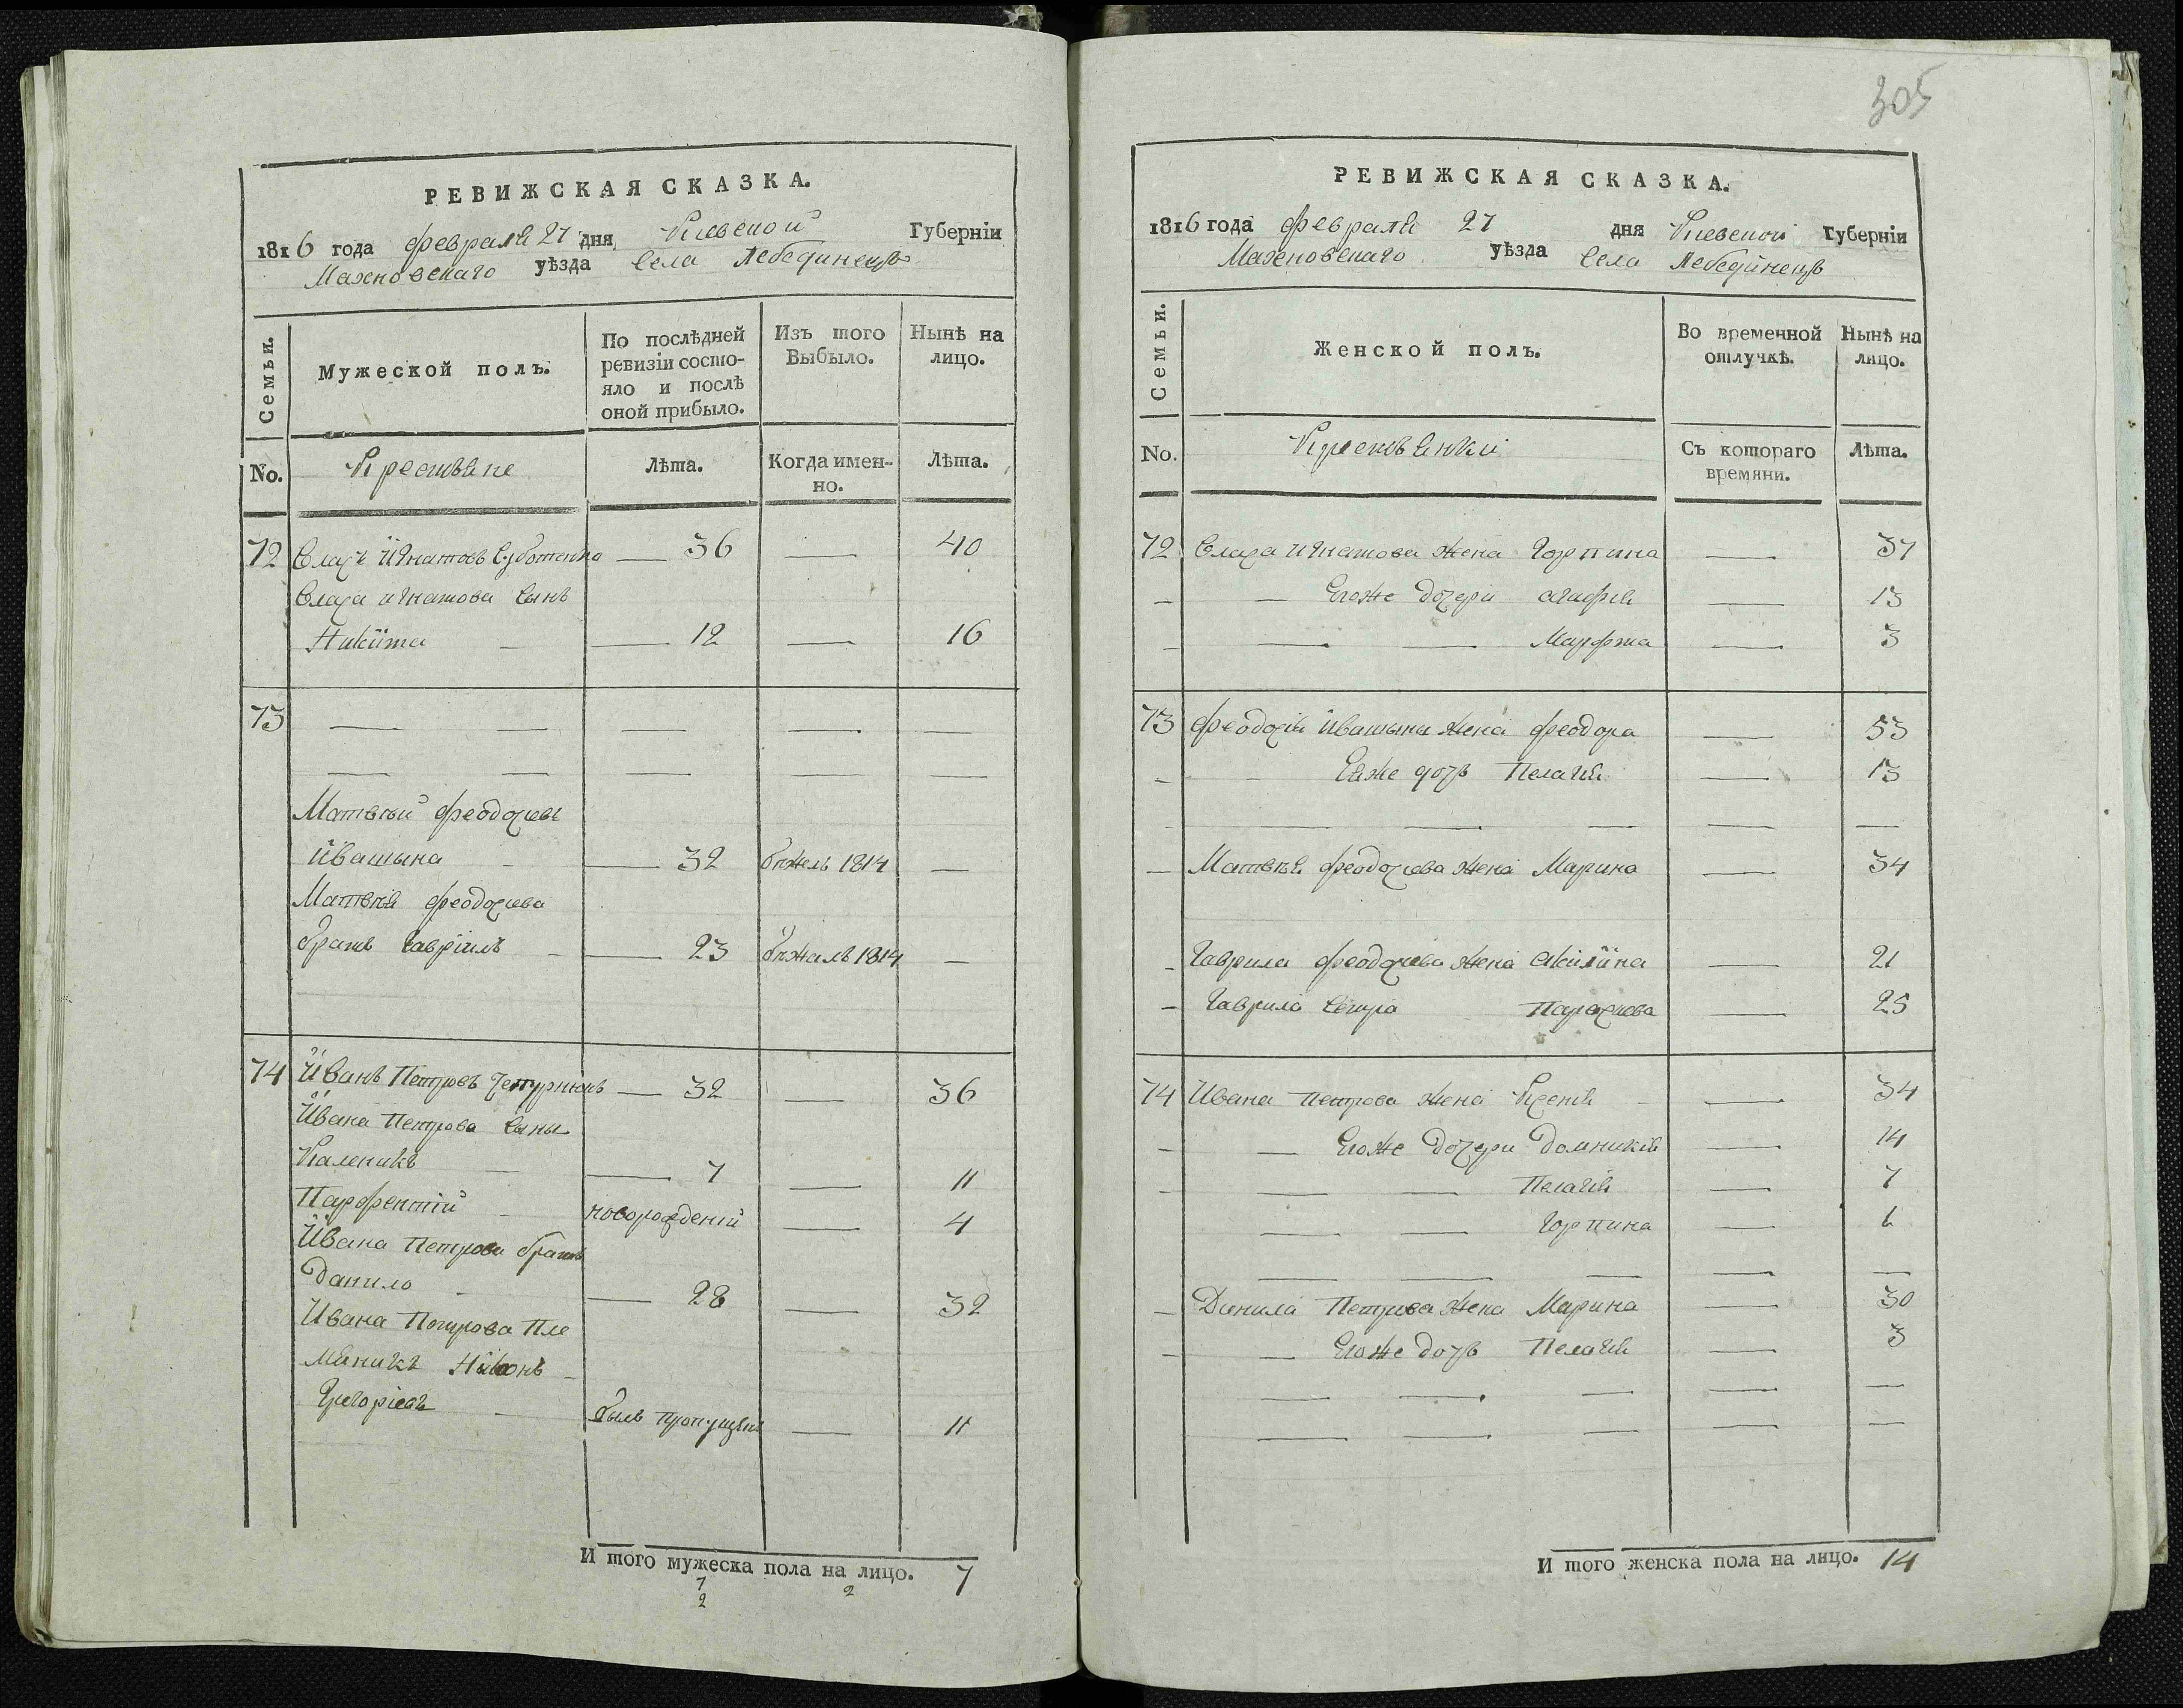 305
РЕВИЖСКАЯ СКАЗКА.
1816 года февраля 27 дня Киевской Губерніи
Махновскаго уѣзда Села Лебединецъ
Семьи.
Мужеской полъ.
По послѣдней ревизіи состо-
яло и послѣ
оной прибыло.
Изъ того
Выбыло.
Нынѣ на
лицо.
No.
Крестьяне
Лѣта.
Когда имен-
но.
Лѣта.
72 Власъ Игнатовъ Суботенко — 36 — 40
Власа игнатова Сынъ
Никита — — 12 — 16
73 — — — — —
— — — — —
Матвѣй феодосиевъ
Ивашына — — 32 бѣжалъ 1814 —
Матвѣя феодосиева
братъ Гавріилъ — — 23 бѣжалъ 1814 —
74 Иванъ Петровъ — 32 — 36
Ивана Петрова Сыны
Каленикъ — — 7 — 11
Парфентій — новорожденій — 4
Ивана Петрова братъ
Данило — — 28 — 32
Ивана Петрова Пле
мяникъ Никонъ —
Григоріевъ — былъ пропущенъ — 11
И того мужеска пола на лицо. 7
7 2
2
РЕВИЖСКАЯ СКАЗКА.
1816 года февраля 27 дня Киевской Губерніи
Махновскаго уѣзда Села Лебединецъ
Семьи.
Женской полъ.
Во временной
отлучкѣ.
Нынѣ на
лицо.
No.
Крестьянки
Съ котораго
времяни.
Лѣта.
72 Власа игнатова жена Горпина — 37
— — Егоже дочери агафія — 13
— — — Марфа — 3
73 феодосія ивашына жена феодора — 53
— — Еяже дочь Пелагія — 13
— — — — — —
— Матвѣя феодосиева жена Марина — 34
— Гаврила феодосиева жена акилина — 21
— Гаврила сестра Параскева — 25
74 Ивана Петрова жена Ксенія — — 34
— — Егоже дочери Домникія — 14
— — — Пелагія — 7
— — Горпина — 6
— — — — —
— Данила Петрова жена Марина — 30
— — Егоже дочь Пелагія — 3
— — — — —
— — — — —
И того женска пола на лицо. 14